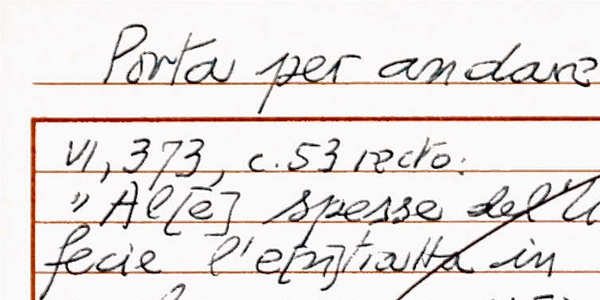 Porta per andare
VI, 373, c. 53 recto:
"Al[e] spesse del
fecie l'e[n]tratta in